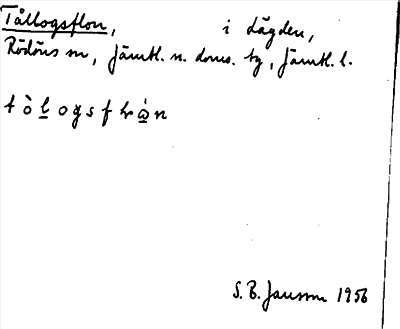 Tållogsflon, i Lägden,
Rödöns sn, Jämtl. n. doms. tg, Jämtl. l.
tòl̲ogsflòn
S. B. Jansson 1956